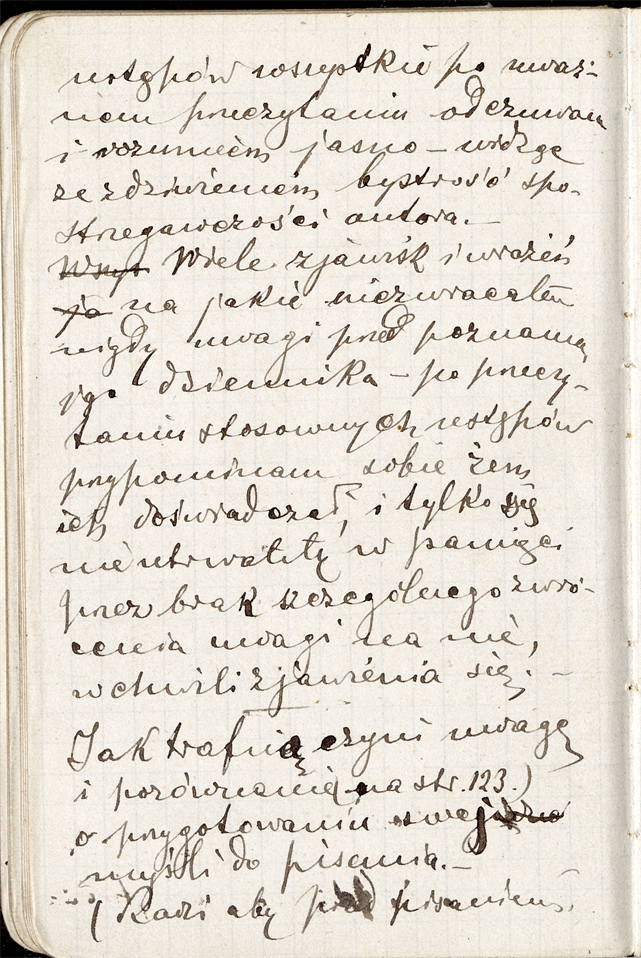 ustępów wszystkie po uważ-
nem przeczytaniu odczuwam
i rozumiem jasno – widzę
ze zdziwieniem bystrość spo-
strzegawczości autora. –
Wiele zjawisk i wrażeń
ja na jakie niezwracałem
nigdy uwagi przed poznaniem
jego dziennika – po przeczy-
taniu stosownych ustępów
przypominam sobie żem
ich doświadczał, i tylko się
nieutrwaliły w pamięci
przez brak szczególnego zwró-
cenia uwagi na nie,
w chwili zjawienia się. –
Jak trafną czyni uwagę
i porównanie (na str. 123.)
o przygotowaniu swej
myśli do pisania. –
(Radzi aby przed pisaniem